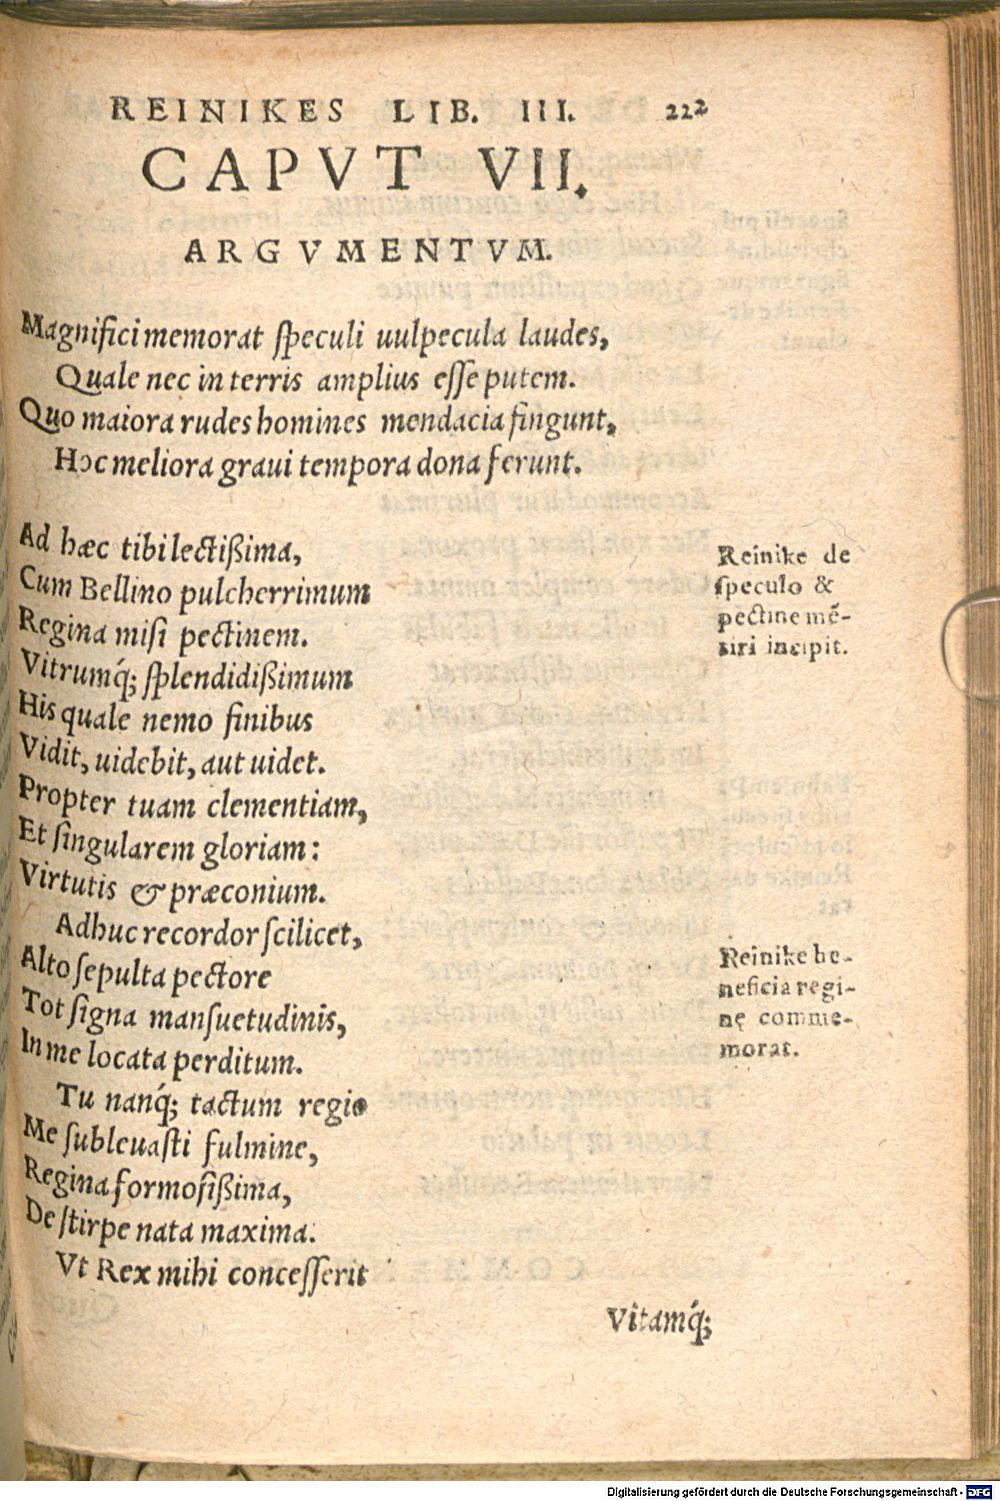 REINIKES LIB. III. 222
CAPVT VII.
ARGVMENTVM.
Magnifici memorat ſpeculi uulpecula laudes,
Quale nec in terris amplius eſſe putem.
Quo maiora rudes homines mendacia fingunt,
Hoc meliora graui tempora dona ferunt.
Ad hæc tibi lectißima,
Cum Bellino pulcherrimum
Regina miſi pectinem.
Vitrumq́; ſplendidißimum
His quale nemo finibus
Vidit, uidebit, aut uidet.
Propter tuam clementiam,
Et ſingularem gloriam:
Virtutis & præconium.
Adhuc recordor ſcilicet,
Alto ſepulta pectore
Tot ſigna manſuetudinis,
In me locata perditum.
Tu nanq́; tactum regio
Me ſubleuaſti fulmine,
Regina formoſißima,
De ſtirpe nata maxima.
Vt Rex mihi conceſſerit
Vitamq́;
Reinike de
ſpeculo &
pectine mē-
tiri incipit.
Reinike be-
neficia regi-
nę comme-
morat.
Digitalisierung gefördert durch die Deutsche Forschungsgemeinschaft - DFG